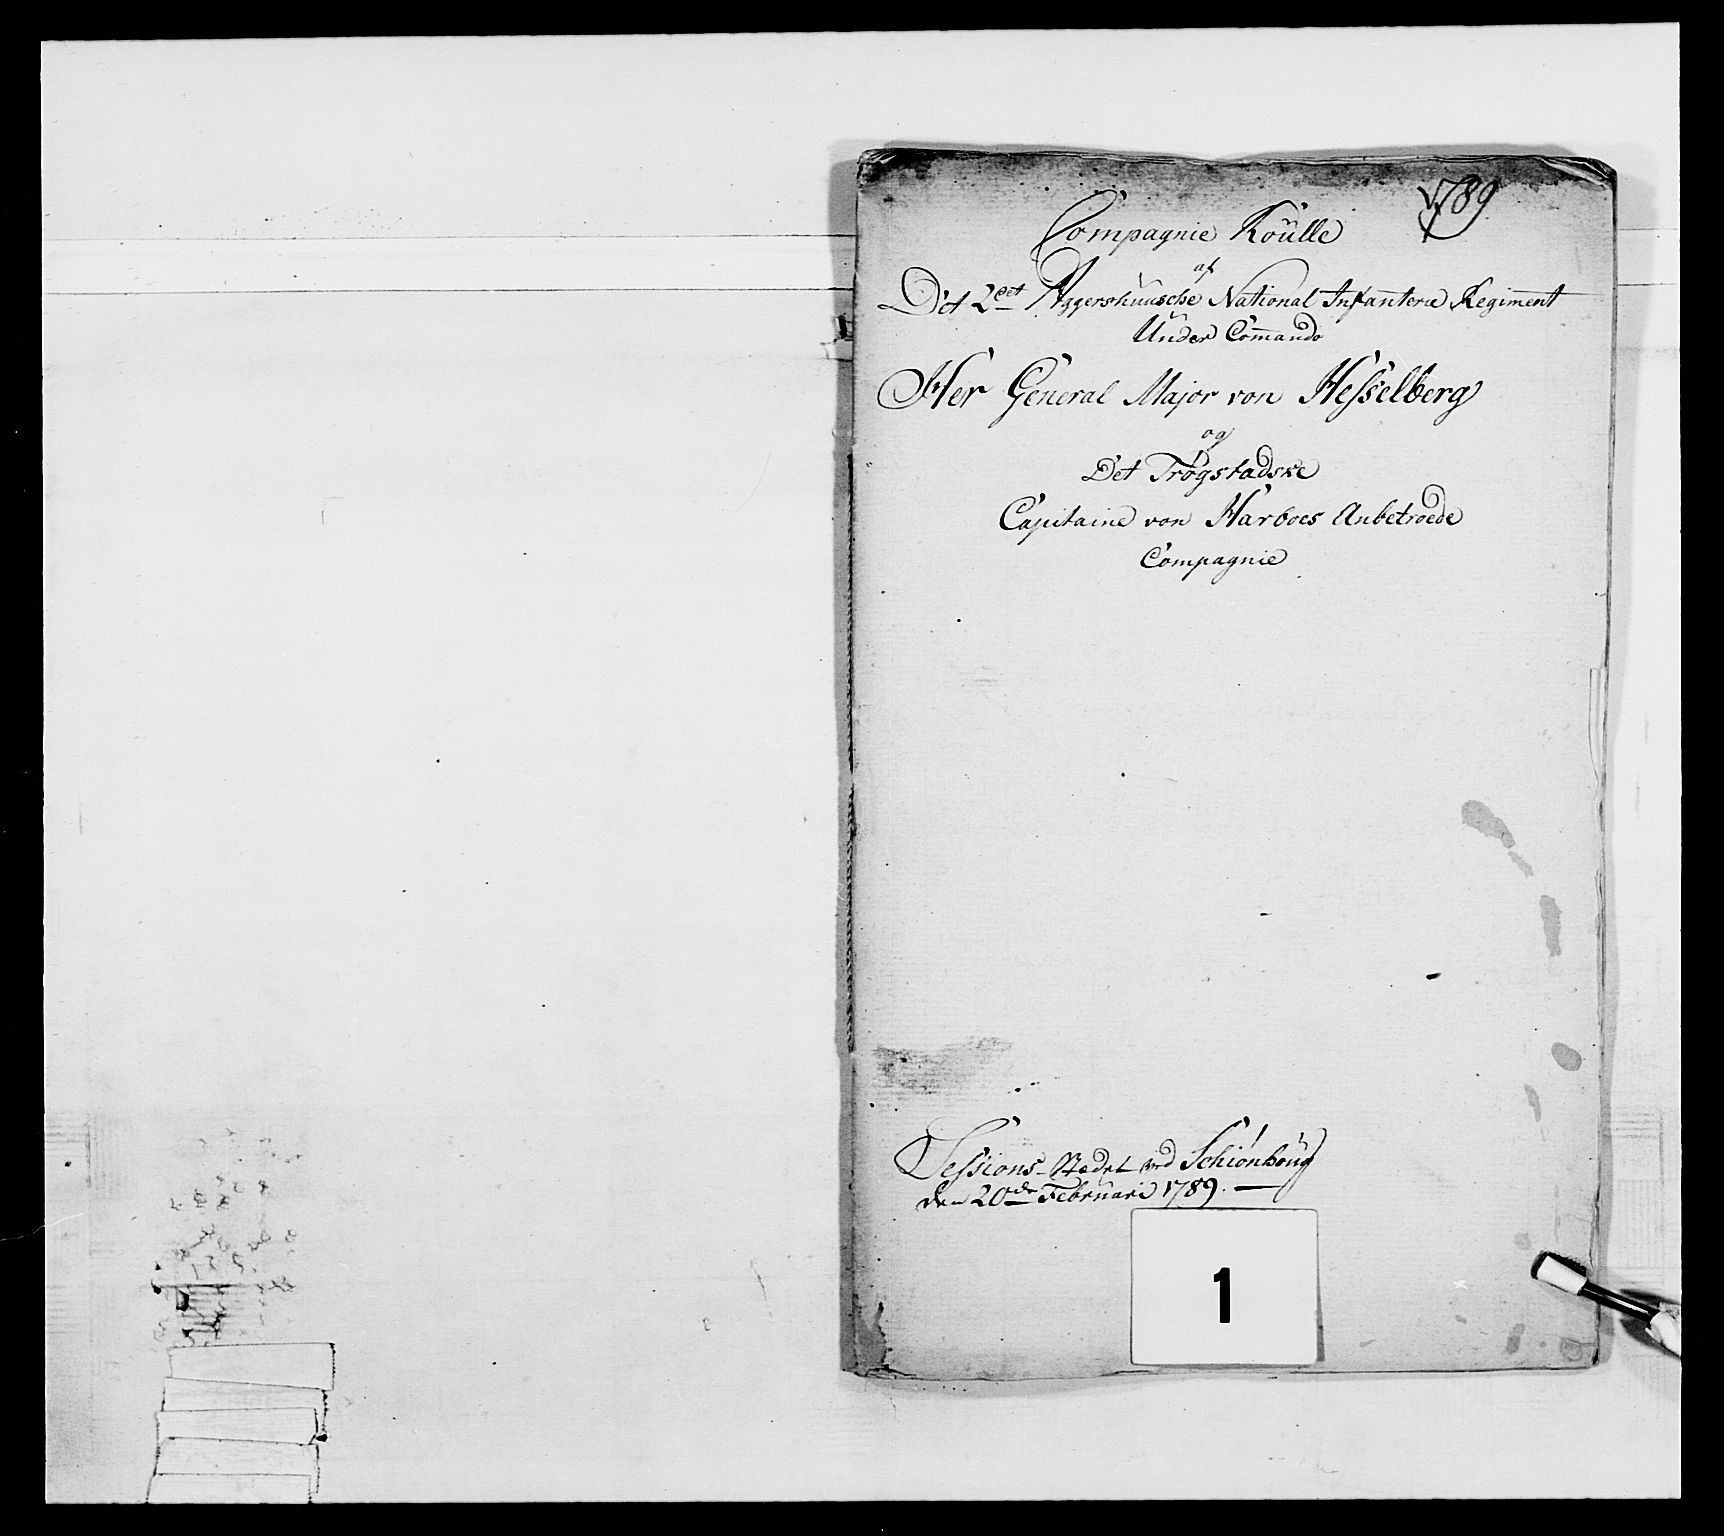 1789
Compagnie Roülle
af
Det 2det Aggershuusche National Infanterie Regiment
Under Com̄ando
Her General Major von Hesselberg
og
Det Trøgstadske
Capitaine von Harboes Anbetroede
Compagnie
Sessions-Stædet ved Schiønhoug
den 20de Februari 1789.
1